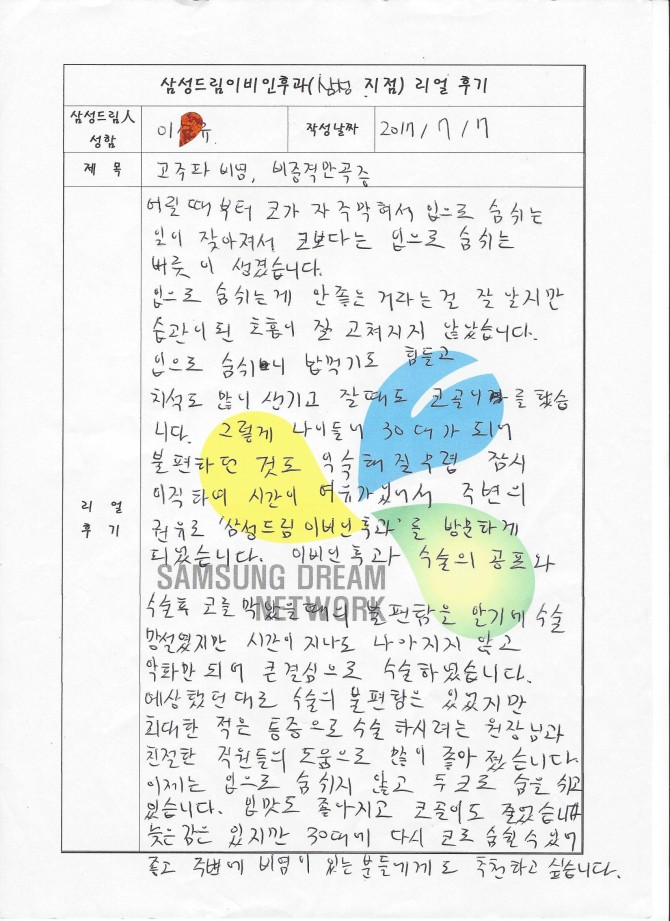 삼성드림이비인후과(삼성 지점) 리얼 후기
삼성드림人
성함
이 유
작성날짜
2017/7/7
제 목
고주파 비염, 비중격만곡증
리 얼
후 기
어릴 때부터 코가 자주막혀서 입으로 숨쉬는
일이 잦아져서 코보다는 입으로 숨쉬는
버릇이 생겼습니다.
입으로 숨쉬는게 안좋은 거라는걸 잘 알지만
습관이된 호흡이 잘 고쳐지지 않았습니다.
입으로 숨쉬니 밥먹기도 힘들고
치석도 많이 생기고 잘때도 코골이를 했습
니다. 그렇게 나이들어 30대가 되어
불편하던 것도 익숙해질무렵 잠시
이직하며 시간이 여유가있어서 주변의
권유로 '삼성드림이비인후과'를 방문하게
되었습니다. 이비인후과 수술의 공포와
SAMSUNG DREAM
NETWORK
수술후 코를 막았을때의 불편함을 알기에 수술
망설였지만 시간이 지나도 나아지지 않고
악화만 되어 큰결심으로 수술하였습니다.
예상했던대로 수술의 불편함은 있었지만
최대한 적은 통증으로 수술 하시려는 원장님과
친절한 직원들의 도움으로 많이 좋아졌습니다.
이제는 입으로 숨쉬지 않고 두코로 숨을 쉬고
있습니다. 입맛도 좋아지고 코골이도 줄었습니다
늦은감은 있지만 30대에 다시 코로 숨쉴수있어
좋고 주변에 비염이 있는 분들에게도 추천하고 싶습니다.